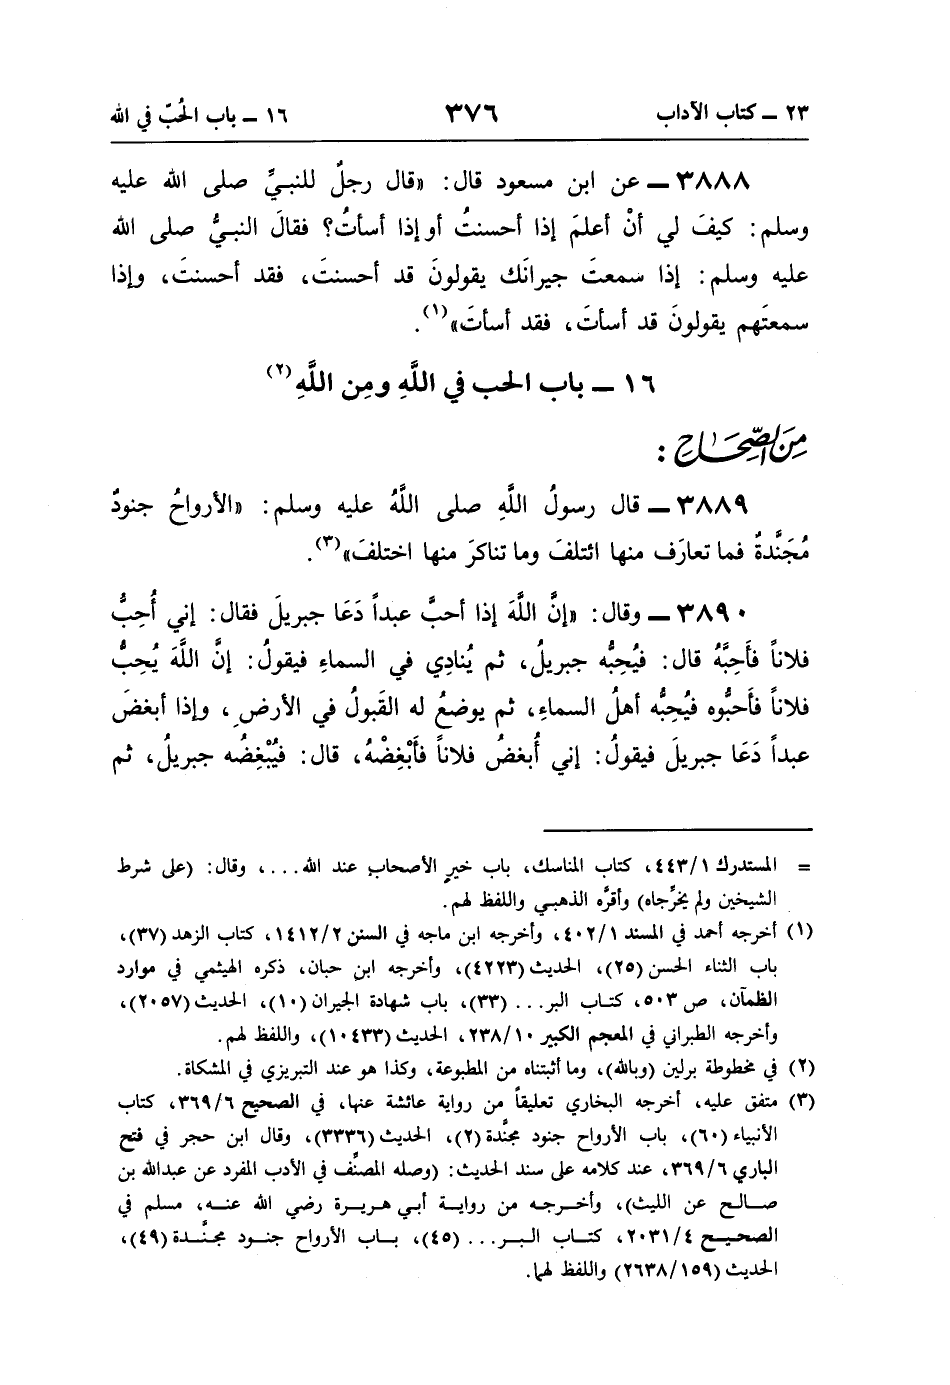 ٢٣ ـ كتاب الآداب ٣٧٦ ١٦ ـ باب الحُبّ في الله
٣٨٨٨ ـ عن ابن مسعود قال: «قال رجلٌ للنبيِّ صلى الله عليه
وسلم: كيفَ لي أنْ أعلمَ إذا أحسنتُ أو إذا أسأتُ؟ فقالَ النبيُّ صلى الله
عليه وسلم: إذا سمعتَ جيرانَك يقولونَ قد أحسنتَ، فقد أحسنتَ، وإذا
سمعتَهم يقولونَ قد أسأتَ، فقد أسأتَ»(١).
١٦ ـ باب الحب في اللَّهِ ومِن اللَّهِ(٢)
مِنَ الصِّحَاحِ :
٣٨٨٩ ـ قال رسولُ اللَّهِ صلى اللَّهُ عليه وسلم: «الأرواحُ جنودٌ
مُجَنَّدةٌ فما تعارَف منها ائتلفَ وما تناكرَ منها اختلفَ»(٣).
٣٨٩٠ ـ وقال: «إنَّ اللَّهَ إذا أحبَّ عبداً دَعَا جبريلَ فقال: إني أُحِبُّ
فلاناً فأَحِبَّهُ قال: فيُحِبُّه جبريلُ، ثم يُنادِي في السماءِ فيقولُ: إنَّ اللَّهَ يُحِبُّ
فلاناً فأحبُّوه فيُحِبُّه أهلُ السماءِ، ثم يوضعُ له القَبولُ في الأرضِ، وإذا أبغضَ
عبداً دَعَا جبريلَ فيقولُ: إني أُبغضُ فلاناً فأَبْغِضْهُ، قال: فيُبْغِضُه جبريلُ، ثم
= المستدرك ٤٤٣/١، كتاب المناسك، باب خير الأصحاب عند الله...، وقال: (على شرط
الشيخين ولم يخرِّجاه) وأقرَّه الذهبي واللفظ لهم.
(١) أخرجه أحمد في المسند ٤٠٢/١، وأخرجه ابن ماجه في السنن ١٤١٢/٢، كتاب الزهد (٣٧)،
باب الثناء الحسن (٢٥)، الحديث (٤٢٢٣)، وأخرجه ابن حبان، ذكره الهيثمي في موارد
الظمآن، ص ٥٠٣، كتاب البر... (٣٣)، باب شهادة الجيران (١٠)، الحديث (٢٠٥٧)،
وأخرجه الطبراني في المعجم الكبير ٢٣٨/١٠، الحديث (١٠٤٣٣)، واللفظ لهم.
(٢) في مخطوطة برلين (وبالله)، وما أثبتناه من المطبوعة، وكذا هو عند التبريزي في المشكاة.
(٣) متفق عليه، أخرجه البخاري تعليقاً من رواية عائشة عنها، في الصحيح ٣٦٩/٦، كتاب
الأنبياء (٦٠)، باب الأرواح جنود مجنَّدة (٢)، الحديث (٣٣٣٦)، وقال ابن حجر في فتح
الباري ٣٦٩/٦، عند كلامه على سند الحديث: (وصله المصنِّف في الأدب المفرد عن عبدالله بن
صالح عن الليث)، وأخرجه من رواية أبي هريرة رضي الله عنه، مسلم في
الصحيح ٢٠٣١/٤، كتاب البر... (٤٥)، باب الأرواح جنود مجنَّدة (٤٩)،
الحديث (٢٦٣٨/١٥٩) واللفظ لهما.